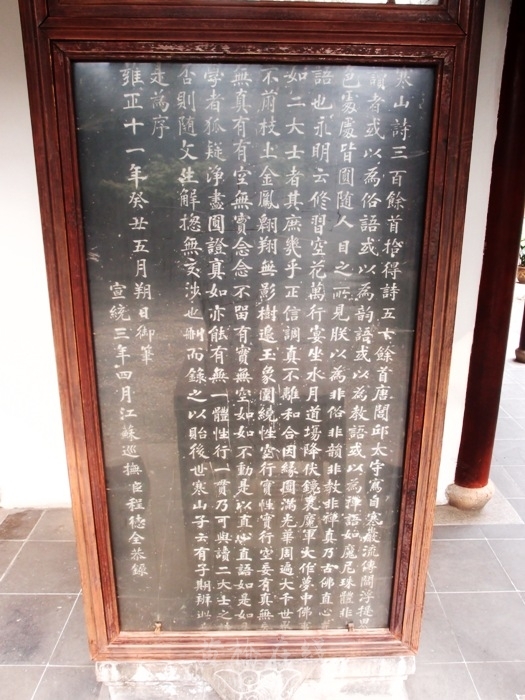 寒山詩三百餘首拾得詩五十餘首唐閭邱太守寫自寒巖流傳閻浮提界
讀者或以為俗語或以為韵語或以為教語或以為禪語如魔尼珠體非
色處處皆圓隨人目之所見朕以為非俗非韻非教非禪真乃古佛直心
語也永明云修習空花萬行宴坐水月道場降伏鏡裏魔軍大作夢中佛
如二大士者其庶幾乎正信調直不離和合因緣圓滿光華周遍大千世
不萠枝上金鳳翺翔無影樹邊玉象圍繞性空行實性實行空妄有真無
無真有有空無實念念不留有實無空如如不動是以直心直語如是如
學者狐疑淨盡圓證真如亦能有無一體性行一貫乃可與讀二大士之
否則隨文生解揔無交涉也刪而錄之以貽後世寒山子云有子期辦
是為序
雍正十一年癸丑五月朔日御筆
宣統三年四月江蘇巡撫臣程德全恭錄